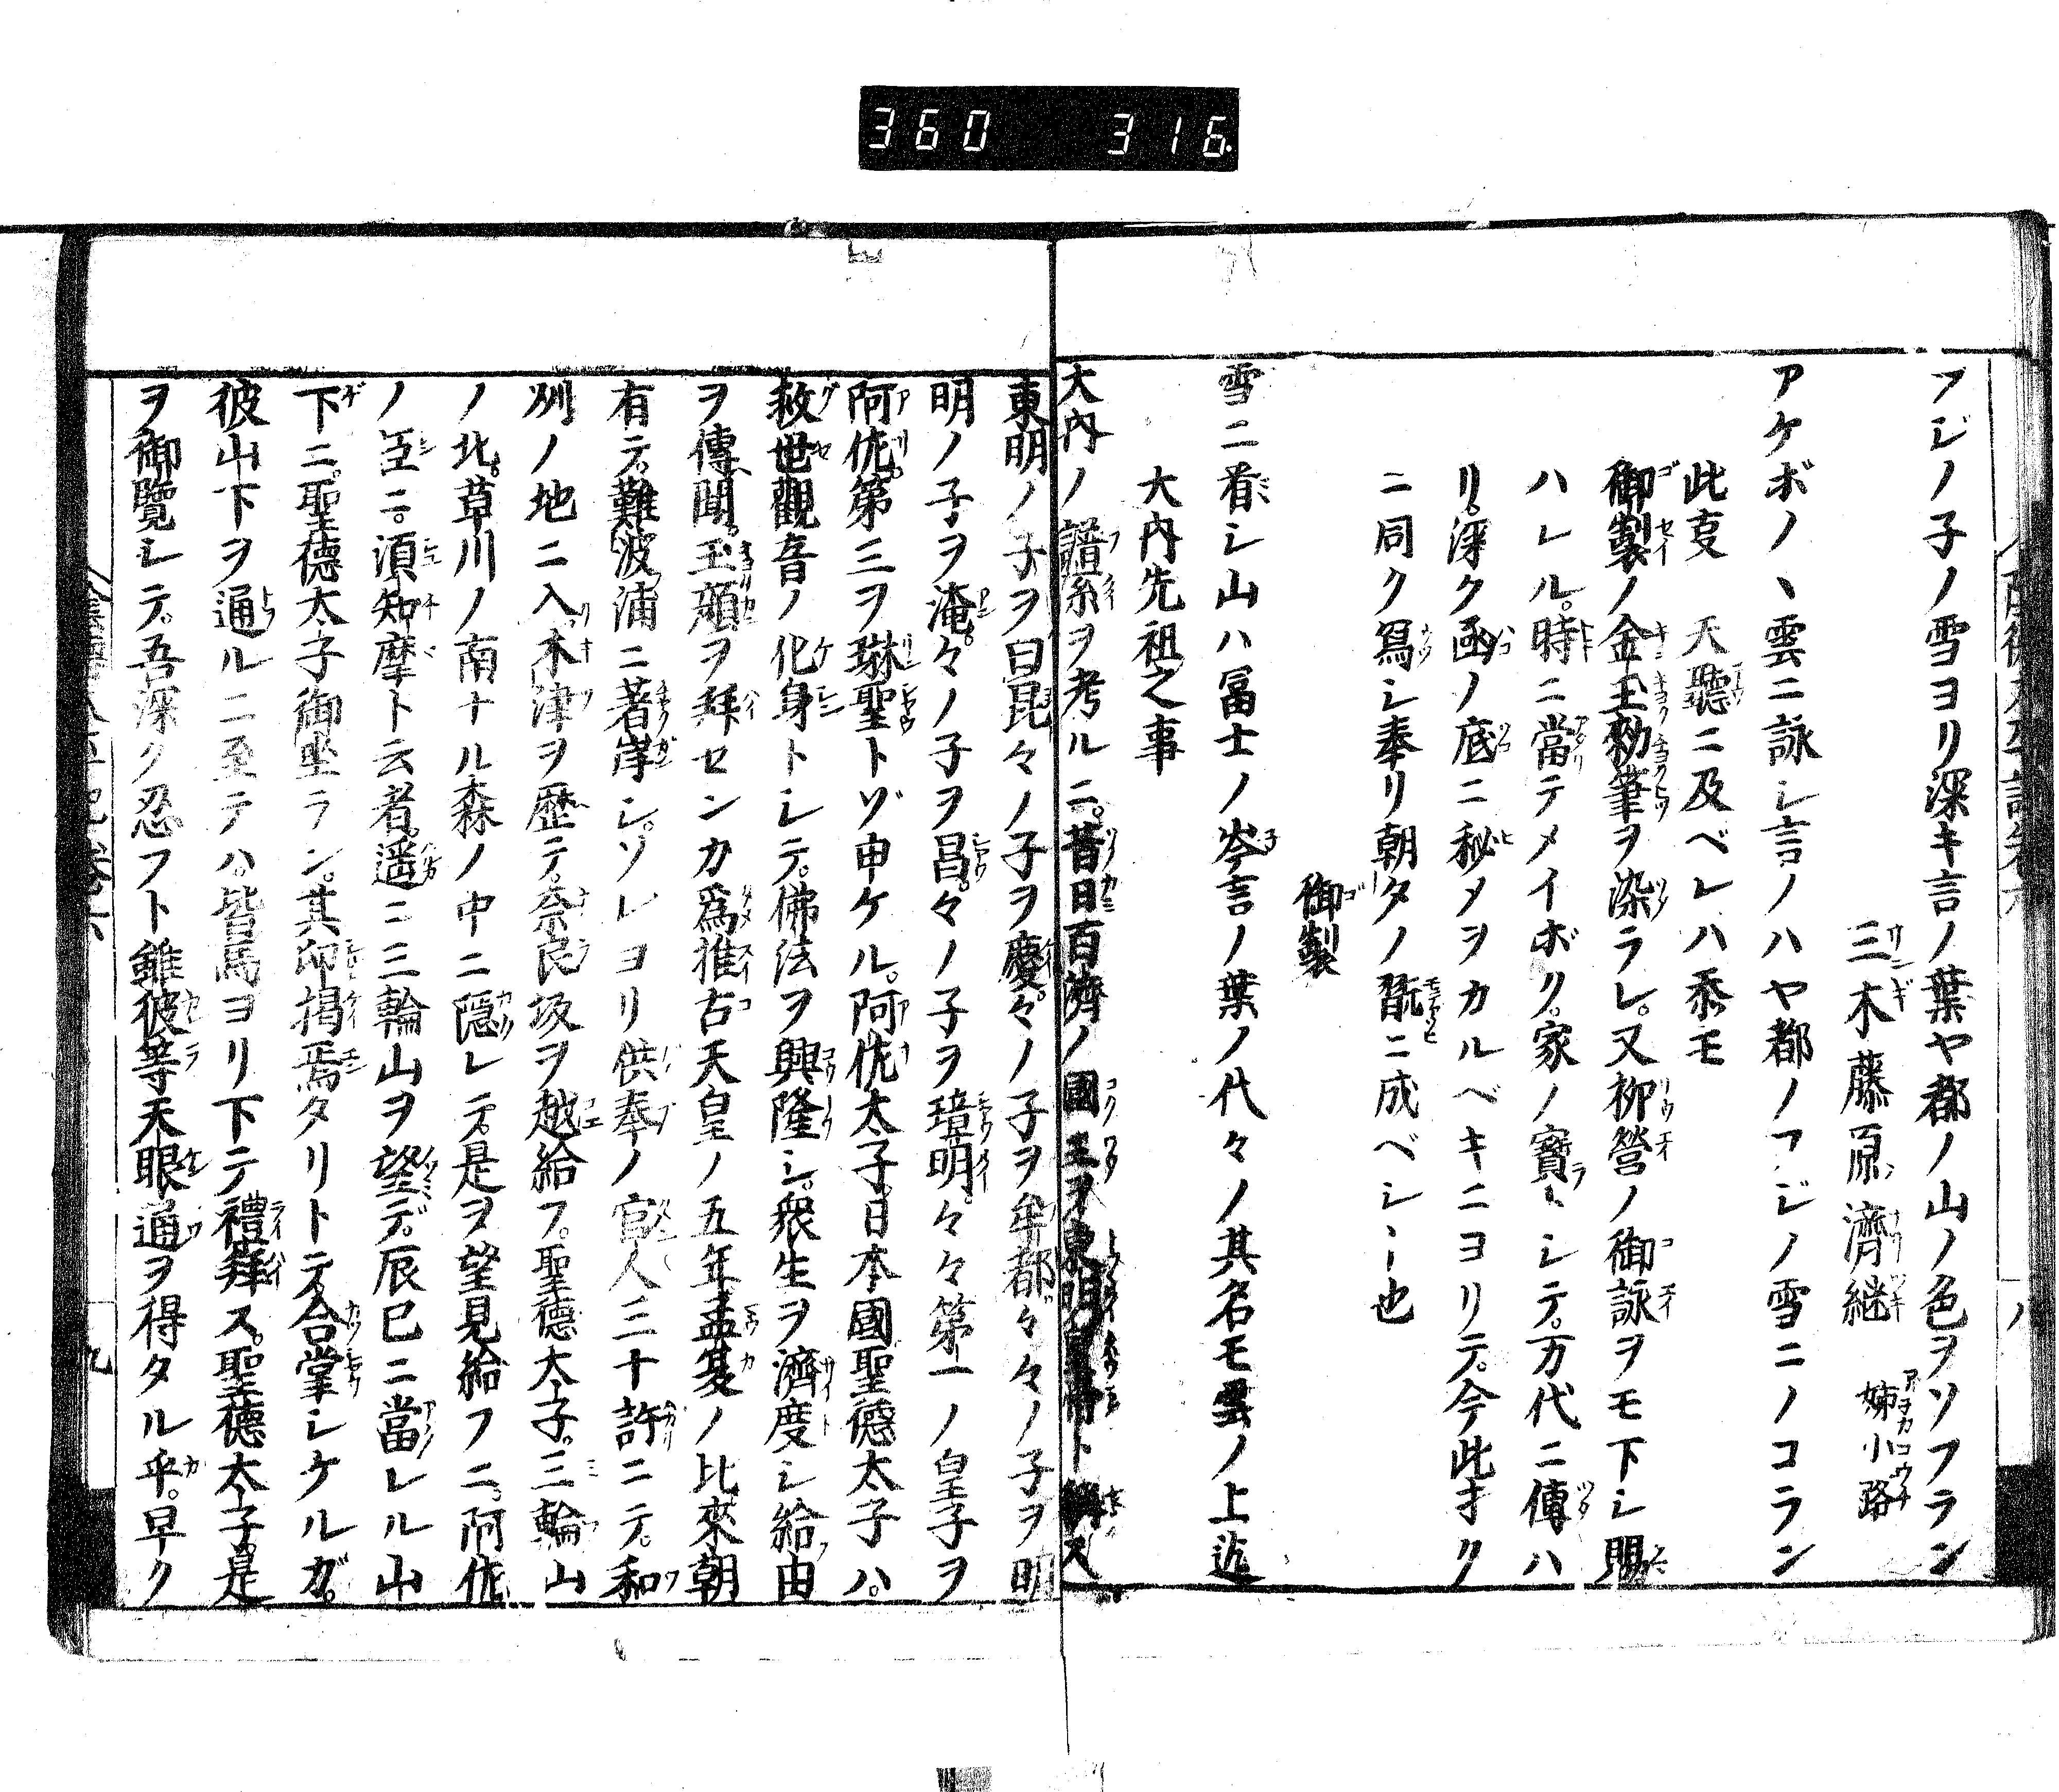 360 316
フジノ子ノ雪ヨリ深キ言ノ葉ヤ都ノ山ノ色ヲソフラン
三木藤原濟継 姉小路
アケボノヽ雲ニ詠シ言ノハヤ都ノフジノ雪ニノコラン
此㕝 天聽ニ及ベレハ忝モ
御製ノ金玉勅筆ヲ染ラレ。又柳營ノ御詠ヲモ下シ賜
ハレル。時ニ當テメイボク。家ノ寶トシテ。万代ニ傳ハ
リ。深ク函ノ底ニ秘メヲカルベキニヨリテ。今此オク
ニ同ク寫シ奉リ朝タノ翫ニ成ベシ〻也
御製
雪ニ看シ山ハ冨士ノ岑言ノ葉ノ代々ノ其名モ雲ノ上迄
大内先祖之事
大内ノ譜系ヲ考ルニ。昔日百濟ノ國王ヲ東明皇帝ト稱ス
東明ノ子ヲ曰昆々ノ子ヲ慶。々ノ子ヲ牟都々々ノ子ヲ明
明ノ子ヲ淹。々ノ子ヲ昌。々ノ子ヲ璋明。々々第一ノ皇子ヲ
阿佐。第三ヲ琳聖トゾ申ケル。阿佐太子。日本國聖德太子ハ。
救世觀音ノ化身トシテ。佛法ヲ興隆シ。衆生ヲ濟度シ給由
ヲ傳聞。玉顔ヲ拜センカ爲推古天皇ノ五年孟夏ノ比來朝
有テ。難波浦ニ著岸シ。ソレヨリ供奉ノ官人三十許ニテ。和
州ノ地ニ入。木津ヲ歴テ。奈良坂ヲ越給フ。聖德太子。三輪山
ノ北。草川ノ南ナル森ノ中ニ隠レテ。是ヲ望見給フニ。阿佐
ノ臣ニ。須知摩ト云者。遥ニ三輪山ヲ望デ。辰巳ニ當レル山
下ニ。聖德太子御坐ラン。其印掲焉タリトテ。合掌シケルガ。
彼山下ヲ通ルニ至テハ。皆馬ヨリ下テ禮拜ス。聖德太子。是
ヲ御覽シテ。吾深ク忍フト雖彼等天眼通ヲ得タル乎。早ク